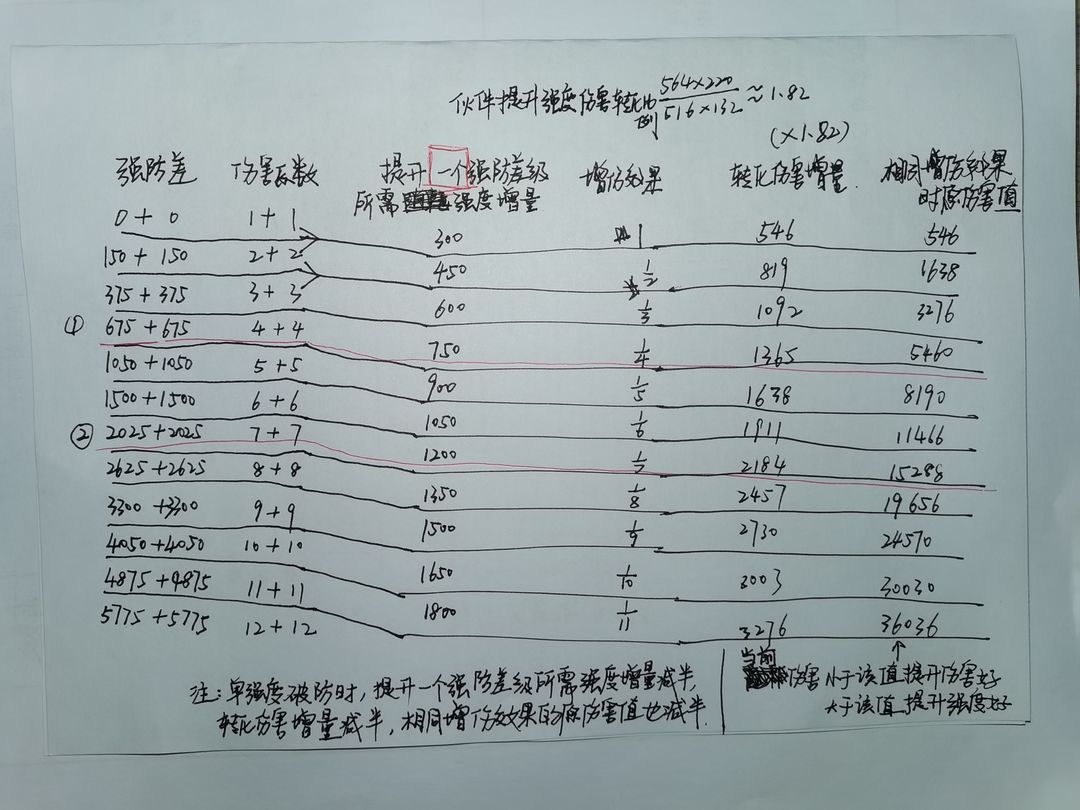 伙伴提升强度伤害转化比例 564×220/516×132 ≈1.82
(×1.82)
强防差 伤害系数 提升一个强防差级所需强度增量 增伤效果 转化伤害增量 相同增伤效果时原伤害值
0+0 1+1
300 1 546 546
150+150 2+2
450 1/2 819 1638
375+375 3+3
600 1/3 1092 3276
① 675+675 4+4
750 1/4 1365 5460
1050+1050 5+5
900 1/5 1638 8190
1500+1500 6+6
1050 1/6 1911 11466
② 2025+2025 7+7
1200 1/7 2184 15288
2625+2625 8+8
1350 1/8 2457 19656
3300+3300 9+9
1500 1/9 2730 24570
4050+4050 10+10
1650 1/10 3003 30030
4875+4875 11+11
1800 1/11 3276 36036
5775+5775 12+12
注:单强度破防时,提升一个强防差级所需强度增量减半,
转化伤害增量减半,相同增伤效果的原伤害值也减半.
↑
当前伤害小于该值提升伤害好
大于该值提升强度好